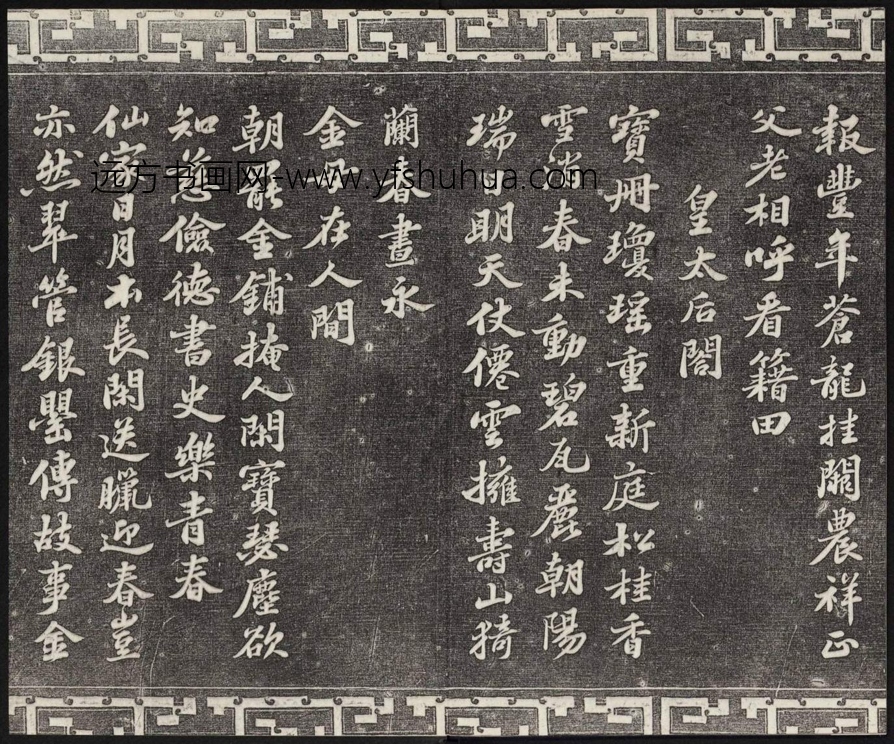 報豐年蒼龍挂闕農祥正
父老相呼看籍田
皇太后閤
寶冊瓊瑤重新庭松桂香
雪消春未動碧瓦麗朝陽
瑞日明天仗僊雲擁壽山猗
蘭春晝永
金母在人間
朝罷金鋪掩人閑寶瑟塵欲
知慈儉德書史樂青春
仙家日月本長閑送臘迎春豈
亦然翠管銀罌傳故事金
远方书画网-www.yfshuhua.com